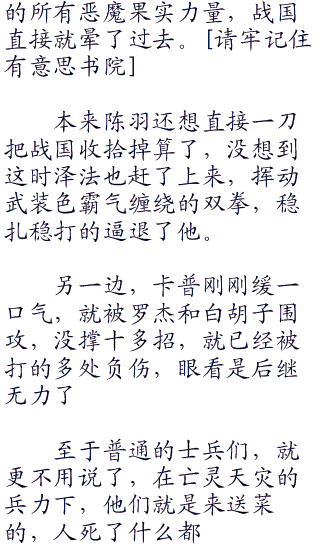 的所有恶魔果实力量，战国
直接就晕了过去。[请牢记住
有意思书院]
本来陈羽还想直接一刀
把战国收拾掉算了，没想到
这时泽法也赶了上来，挥动
武装色霸气缠绕的双拳，稳
扎稳打的逼退了他。
另一边，卡普刚刚缓一
口气，就被罗杰和白胡子围
攻，没撑十多招，就已经被
打的多处负伤，眼看是后继
无力了
至于普通的士兵们，就
更不用说了，在亡灵天灾的
兵力下，他们就是来送菜
的，人死了什么都